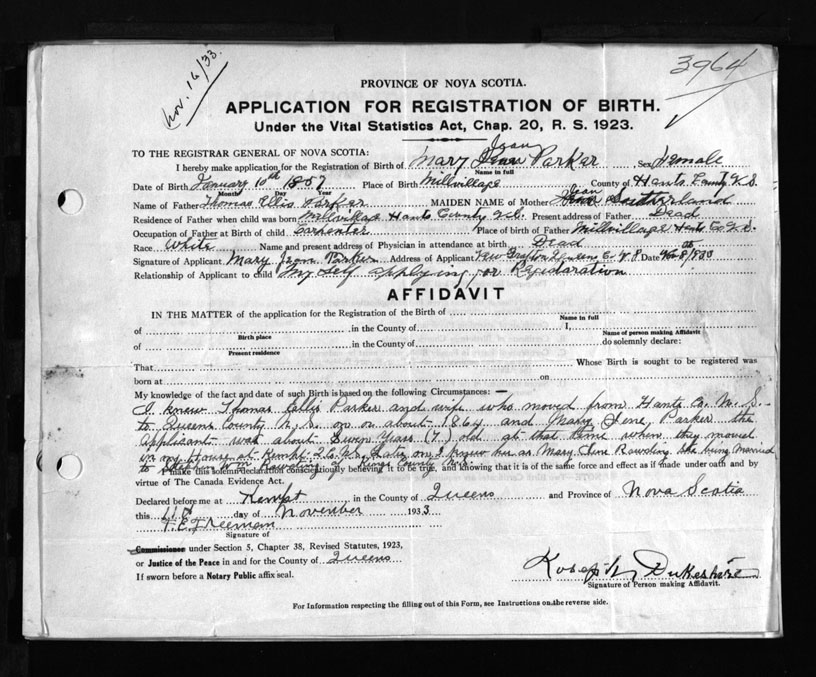 Nov. 16/33.
3964
PROVINCE OF NOVA SCOTIA.
APPLICATION FOR REGISTRATION OF BIRTH.
Under the Vital Statistics Act, Chap. 20, R. S. 1923.
TO THE REGISTRAR GENERAL OF NOVA SCOTIA:
I hereby make application for the Registration of Birth of Mary Jean Parker Sex Female
Name in full
Date of Birth January 10th 1857 Place of Birth Millvillage County of Hants County N.S.
Month Day Year
Name of Father Thomas Ellis Parker MAIDEN NAME of Mother Jean Southerland
Residence of Father when child was born Millvillage Hants County N.S. Present address of Father Dead
Occupation of Father at Birth of child Carpenter Place of birth of Father Millvillage Hants Co N.S.
Race White Name and present address of Physician in attendance at birth Dead
Signature of Applicant Mary Jean Parker Address of Applicant New Grafton Queens Co N.S. Date
Relationship of Applicant to child My Self applying for Registaration
AFFIDAVIT
IN THE MATTER of the application for the Registration of the Birth of
Name in full
of in the County of I,
Birth place Name of person making Affidavit
of in the County of do solemnly declare:
Present residence
That Whose Birth is sought to be registered was
born at on
My knowledge of the fact and date of such Birth is based on the following Circumstances: —
I knew Thomas Ellis Parker and wife who moved from Hants Co. N. S.
to Queens County N. S. on or about 1864 and Mary Jene Parker the
Applicant was about Seven Years (7.) old at that time when they moved
in my House at Kempt Q. Co. N.S. Later on I knew her as Mary Jene Rowding She being married
to
I make this solemn declaration conscientiously believing it to be true, and knowing that it is of the same force and effect as if made under oath and by
virtue of The Canada Evidence Act.
Declared before me at Kempt in the County of Queens and Province of Nova Scotia
this day of November 1933
Freeman
Signature of
Commissioner under Section 5, Chapter 38, Revised Statutes, 1923,
or Justice of the Peace in and for the County of Queens
If sworn before a Notary Public affix seal.
Dukeshire
Signature of Person making Affidavit.
For Information respecting the filling out of this Form, see Instructions on the reverse side.